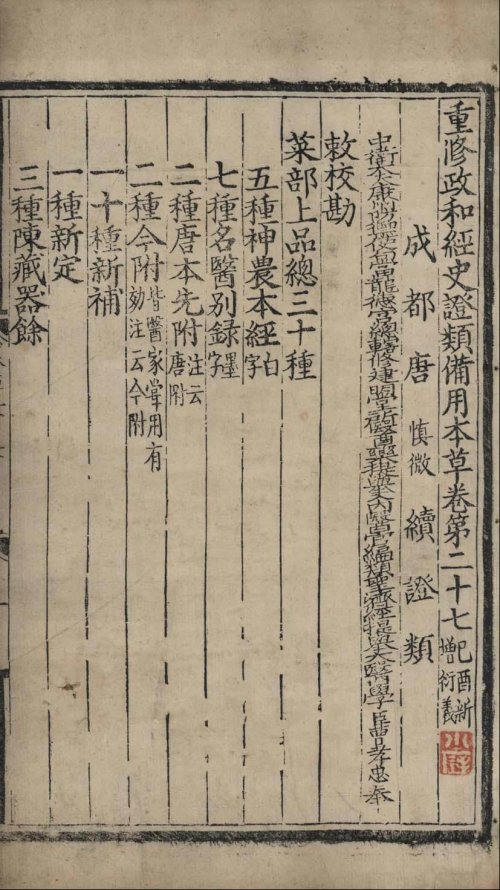 重修政和經史證類備用本草卷第二十七己酉新增衍義
成都唐慎微續證類
中衛大夫康州防禦使句當龍德宮總轄修建明堂所醫藥提舉入內醫官編類聖濟經提舉太醫學臣曹孝忠奉
敕校勘
菜部上品總三十種
五種神農本經白字
七種名醫別錄墨字
二種唐本先附注云唐附
二種今附皆醫家嘗用有効注云今附
一十種新補
一種新定
三種陳藏器餘